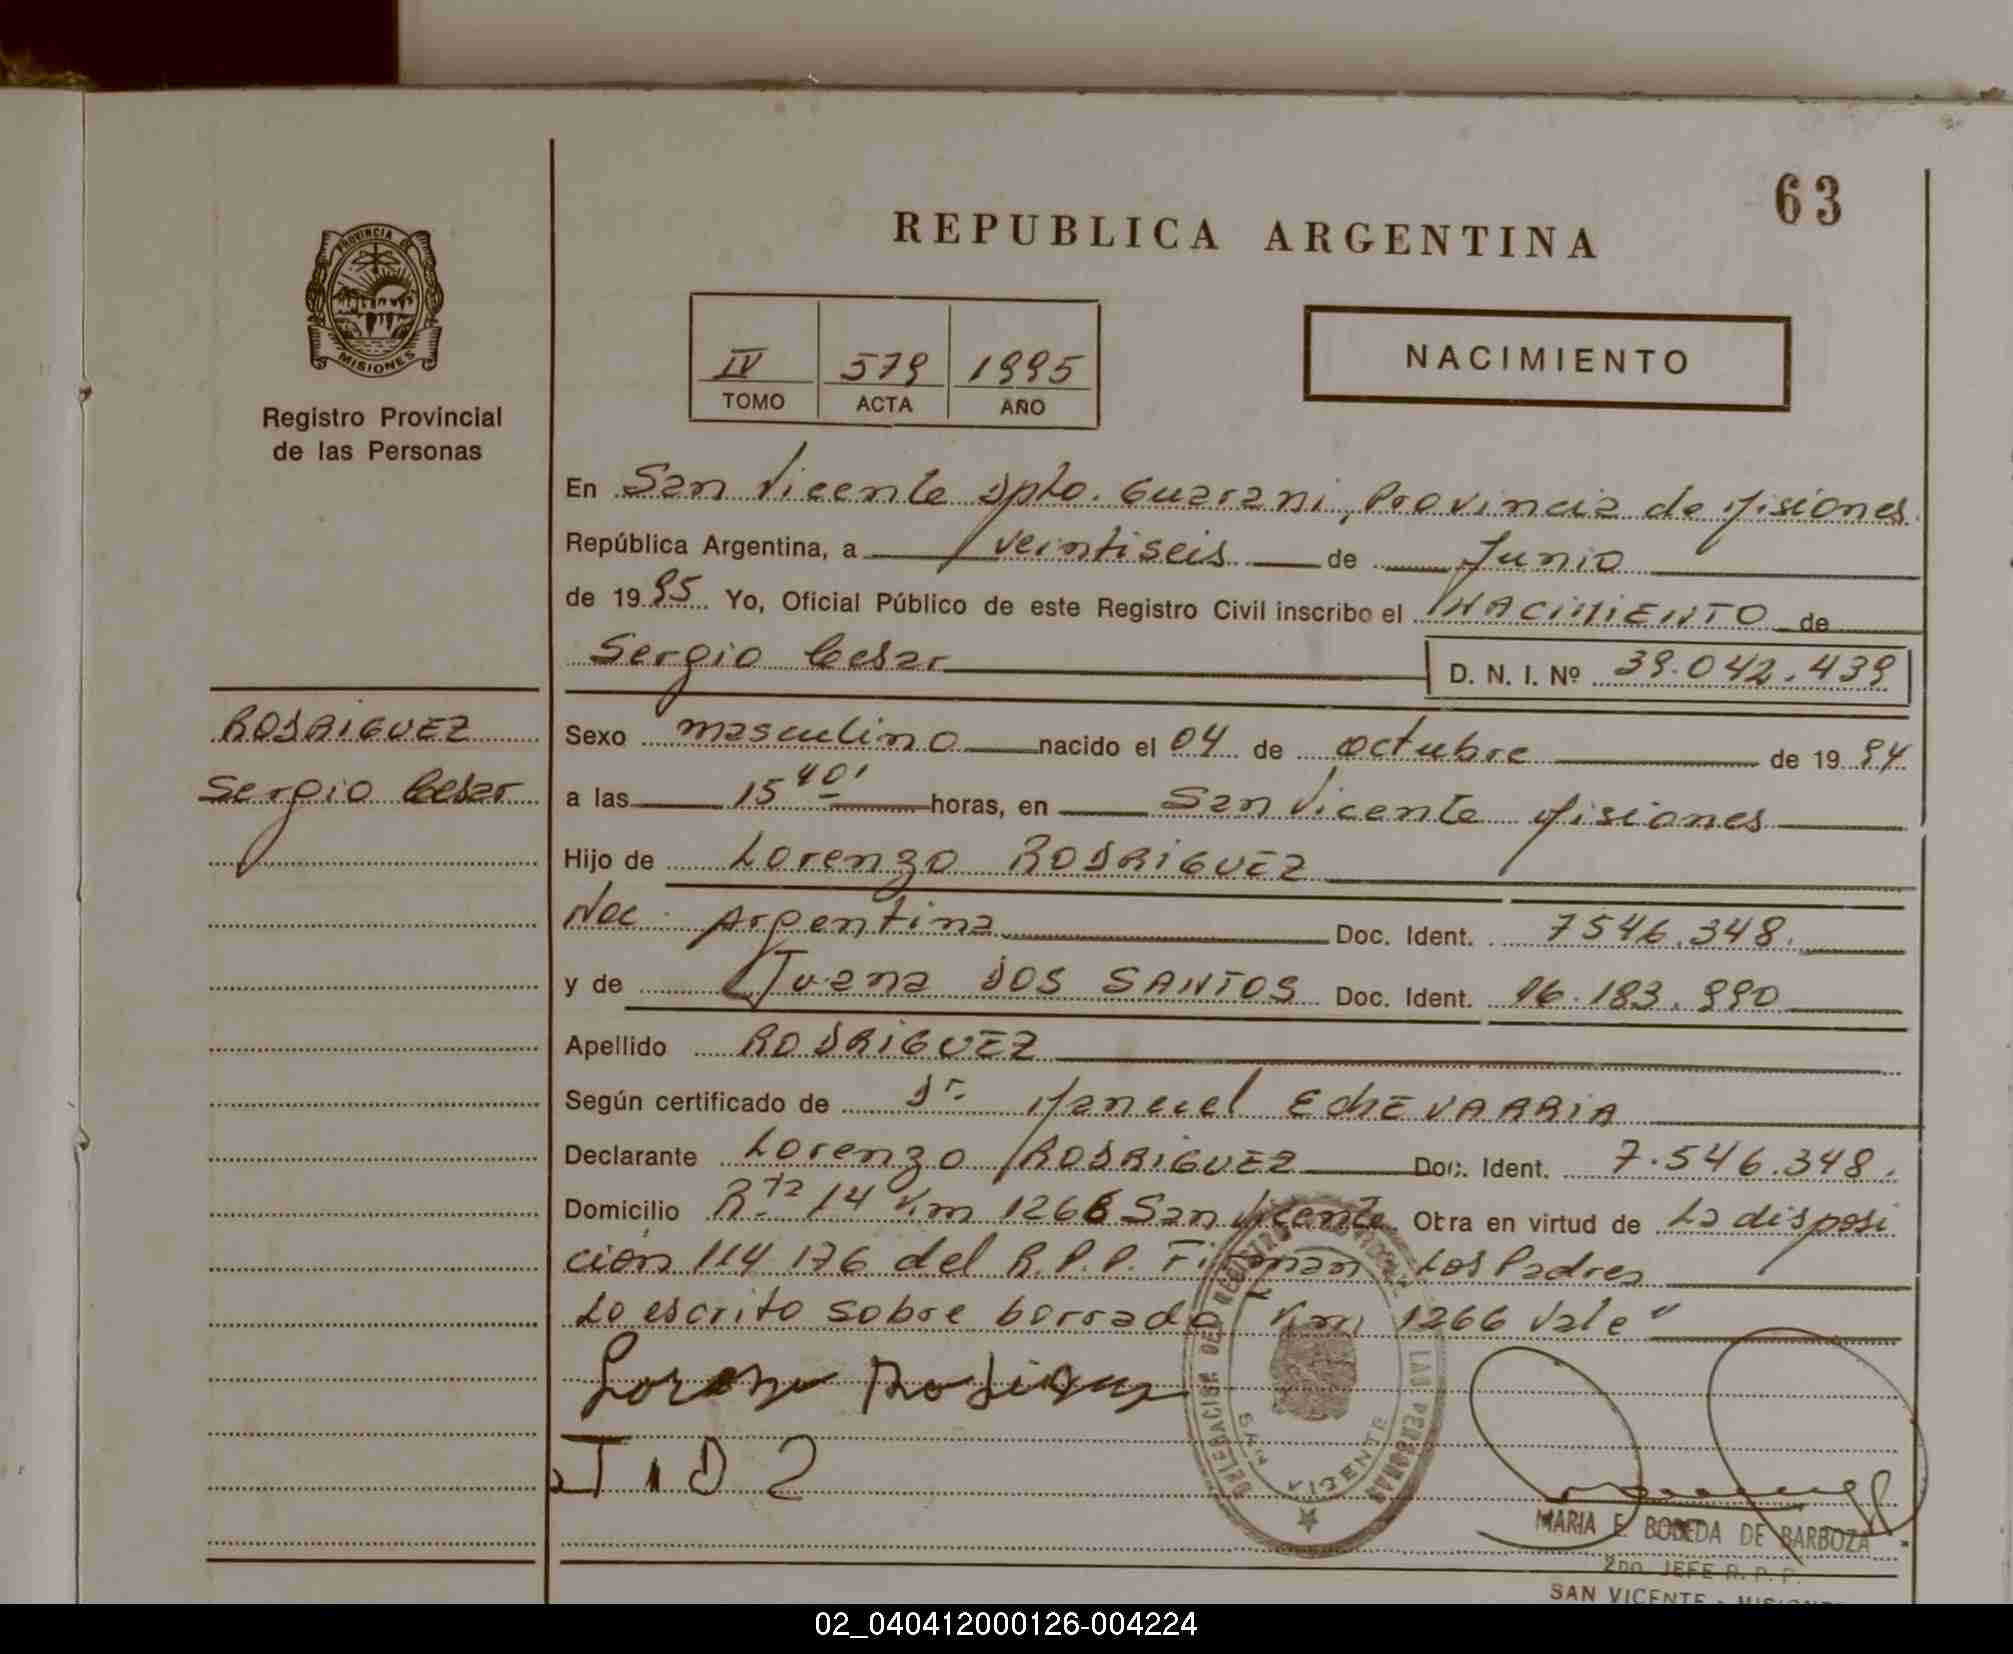 63
REPUBLICA ARGENTINA
PROVINCIA DE
MISIONES
Registro Provincial
de las Personas
IV 579 1995
TOMO ACTA AÑO
NACIMIENTO
En San Vicente Dpto. Guarani, Provincia de Misiones
República Argentina, a veintiseis de Junio
de 1995 Yo, Oficial Público de este Registro Civil inscribo el NACIMIENTO de
Sergio Cesar D. N. I. Nº 39.042.439
RODRIGUEZ
Sergio Cesar
Sexo masculino nacido el 04 de octubre de 1994
a las 15 40' horas, en San Vicente Misiones
Hijo de Lorenzo RODRIGUEZ
Nac. Argentina Doc. Ident. 7546.348.
y de Juana DOS SANTOS Doc. Ident. 16.183.990
Apellido RODRIGUEZ
Según certificado de Dr. Manuel ECHEVARRIA
Declarante Lorenzo RODRIGUEZ Doc. Ident. 7.546.348.
Domicilio R.ta 14 Km 1266 San Vicente Otra en virtud de La disposi
ción 114 176 del R.P.P. Firman Los Padres
Lo escrito sobre borrado Km 1266 Vale"
Lorenzo
DELEGACION DEL REGISTRO PROVINCIAL DE LAS PERSONAS
SAN VICENTE
MARIA E. BOBEDA DE BARBOZA
2DO. JEFE R. P. P.
SAN VICENTE - MISIONES
02_040412000126-004224